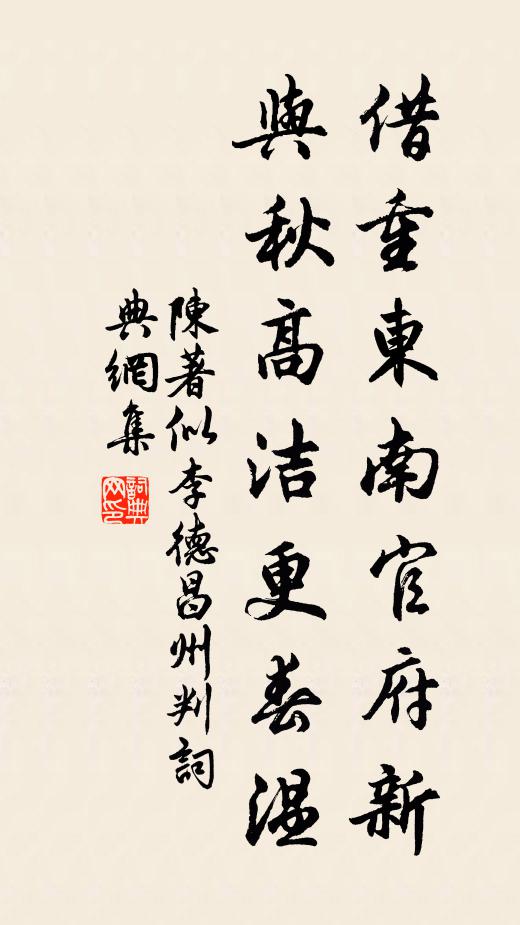 借重東南官府新
與秋高洁更春温
陳著似李德昌州判詞
典網集
詞典網印